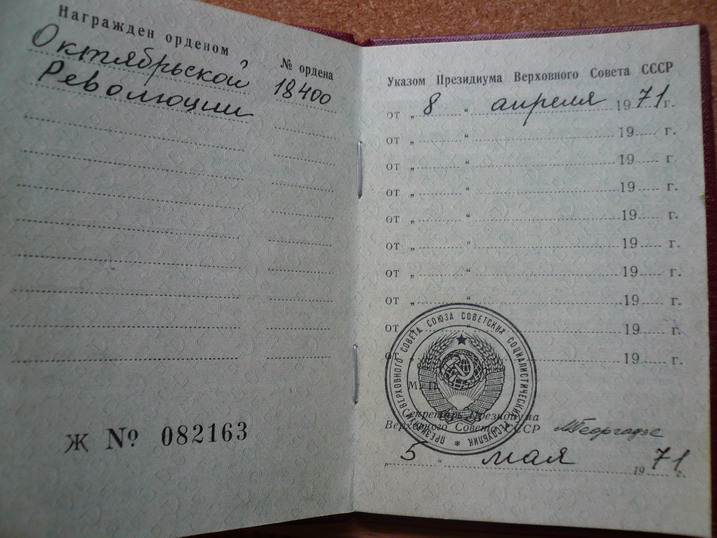 Награжден орденом
№ ордена
Октябрьской
18400
Революции
Ж № 082163
Указом Президиума Верховного Совета СССР
от „ 8 “ апреля 1971 г.
от „ “ 19 г.
от „ “ 19 г.
от „ “ 19 г.
от „ “ 19 г.
от „ “ 19 г.
от „ “ 19 г.
от „ “ 19 г.
от „ “ 19 г.
от „ “ 19 г.
ПРЕЗИДИУМ ВЕРХОВНОГО СОВЕТА СОЮЗА СОВЕТСКИХ СОЦИАЛИСТИЧЕСКИХ РЕСПУБЛИК
М. П.
Секретарь Президиума
Верховного Совета СССР
МГеоргадзе
„ 5 “ мая 1971